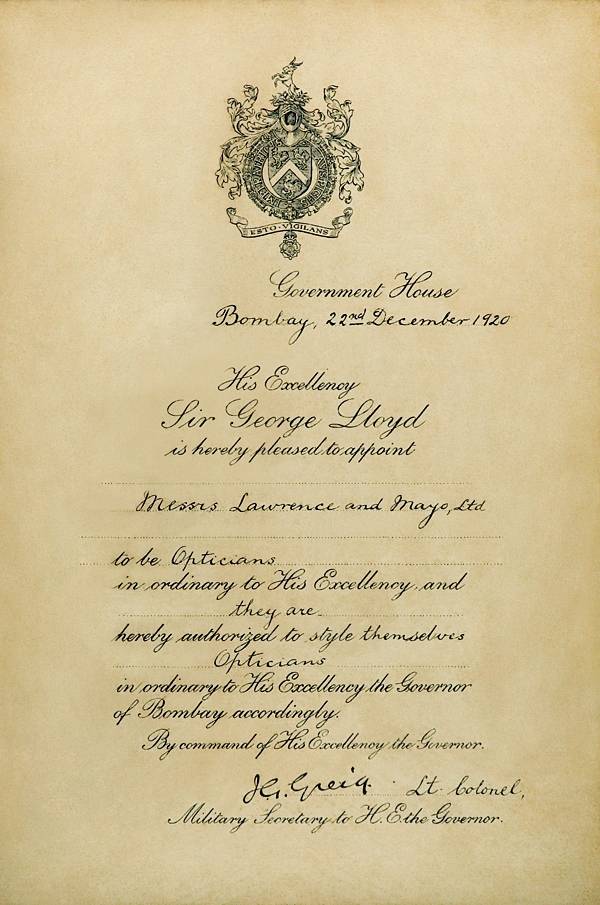 ESTO · VIGILANS
Government House
Bombay, 22nd December 1920
His Excellency
Sir George Lloyd
is hereby pleased to appoint
Messrs Lawrence and Mayo, Ltd
to be Opticians
in ordinary to His Excellency and
they are
hereby authorized to style themselves
Opticians
in ordinary to His Excellency the Governor
of Bombay accordingly.
By command of His Excellency the Governor.
J.G. Greig Lt. Colonel,
Military Secretary to H.E. the Governor.